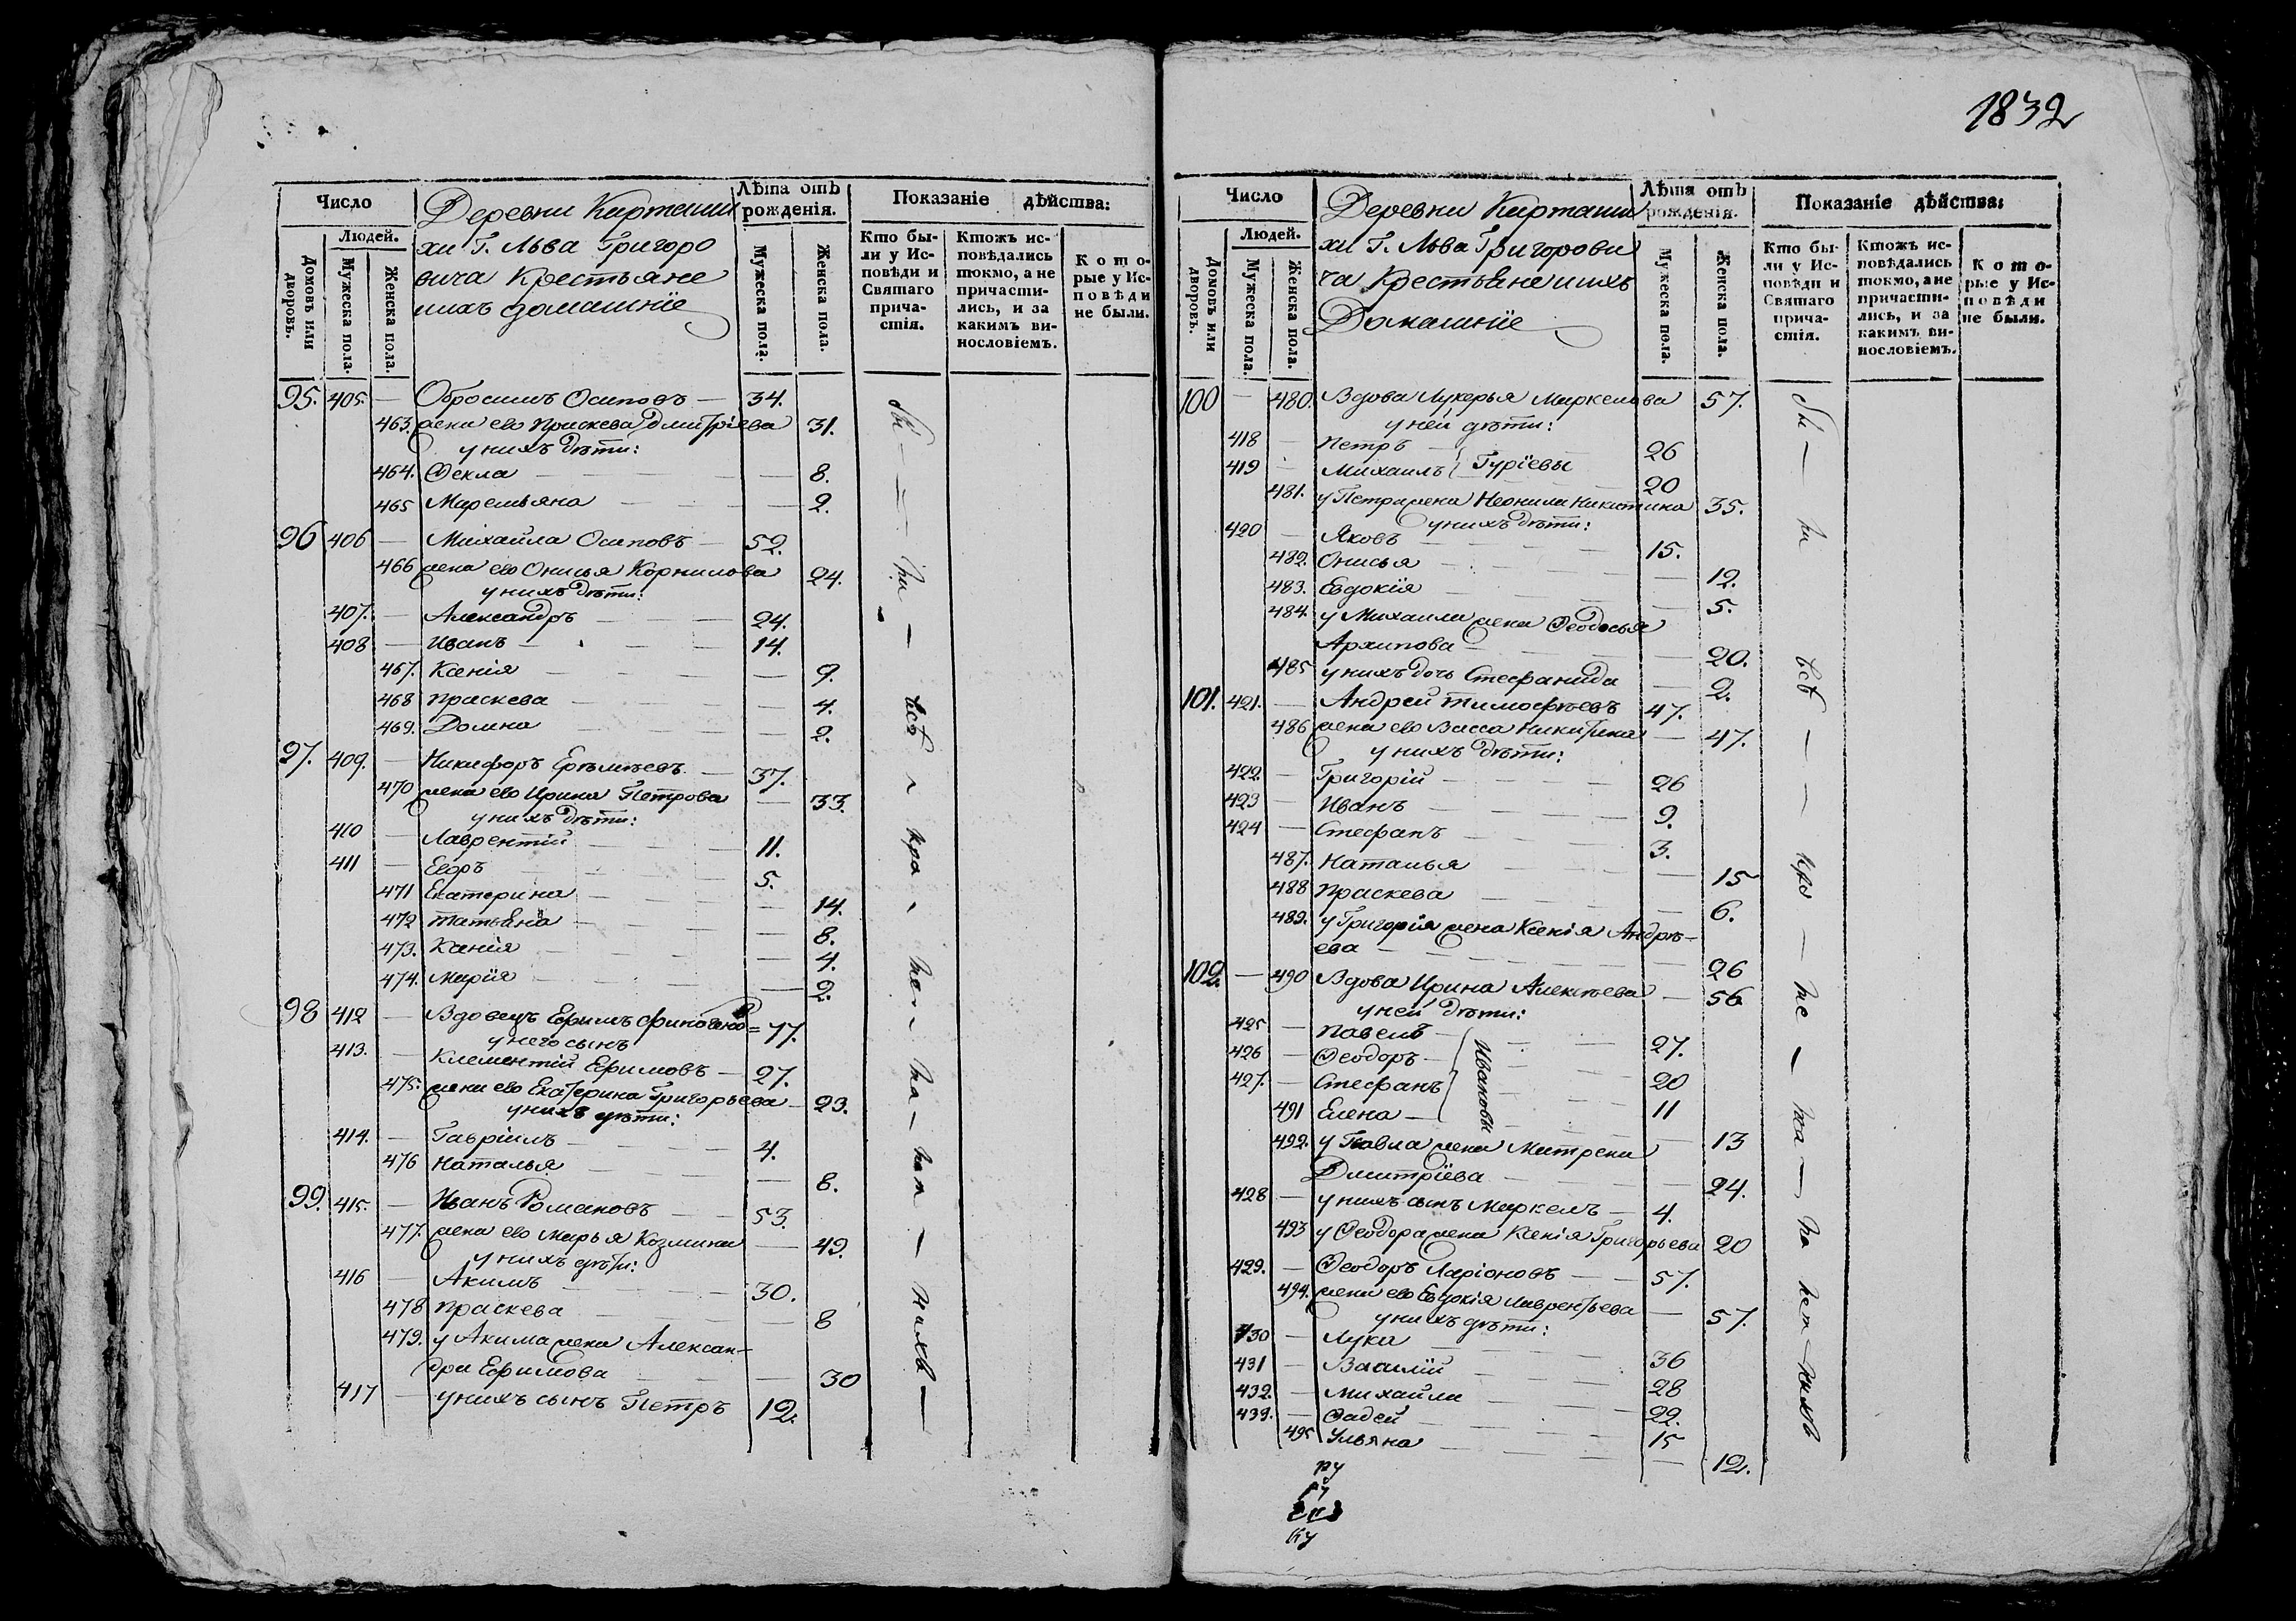 1832
Число
Людей.
Домовъ или дворовъ.
Мужеска пола.
Женска пола.
Деревни Карташи
хи Г. Льва Григоро
вича Крестьяне
ихъ домашніе
Лѣта отъ рожденія.
Мужеска пола.
Женска пола.
Показаніе дѣйства:
Кто бы-
ли у Ис-
повѣди и
Святаго
прича-
стія.
Ктожъ ис-
повѣдались
токмо, а не
причасти-
лись, и за
какимъ ви-
нословіемъ.
Кото-
рые у Ис-
повѣди
не были.
95. 405. — Обросимъ Осиповъ — 34.
463. жена ево Праскева Дмитріева 31.
у нихъ дѣти:
464. Ѳекла — 8.
465 Маремьяна — 2.
96 406 — Михайла Осиповъ — 52.
466 жена ево Онисья Корнилова 24.
у нихъ дѣти:
407. — Александръ — 24.
408 — Иванъ — 14.
467. Ксенія — 9.
468 Праскева — 4.
469. Домна — 2.
97. 409. — Никифоръ Еремѣевъ — 37.
470 жена ево Ирина Петрова — 33.
у нихъ дѣти:
410 — Лаврентій — 11.
411 — Егоръ — 5.
471 Екатерина — 14.
472 Татьяна — 8.
473. Ксенія — 4.
474. Марія — 2.
98 412 — Вдовецъ Ефимъ = 77.
у него сынъ
413. — Клементій Ефимовъ — 27.
475. жена ево Екатерина Григорьева — 23.
у нихъ дѣти:
414. — Гавріилъ — 4.
476 Наталья — 8.
99. 415. — Иванъ Романовъ — 53.
477. жена ево Марья Козмина — 49.
у нихъ дѣти:
416 — Акимъ — 30.
478 Праскева — 8
479. у Акима жена Алексан-
дра Ефимова — 30
417 — у нихъ сынъ Петръ 12.
Число
Людей.
Домовъ или дворовъ.
Мужеска пола.
Женска пола.
Деревни Карташи
хи Г. Льва Григорови
ча Крестьяне ихъ
Домашніе
Лѣта отъ рожденія.
Мужеска пола.
Женска пола.
Показаніе дѣйства:
Кто бы-
ли у Ис-
повѣди и
Святаго
прича-
стія.
Ктожъ ис-
повѣдались
токмо, а не
причасти-
лись, и за
какимъ ви-
нословіемъ.
Кото-
рые у Ис-
повѣди
не были.
100 — 480. Вдова Лукерья Маркелова 57.
у ней дѣти:
418 — Петръ 26
419 — Михаилъ Гуріевы 20
481. у Петра жена Неонила Никитина 35.
у нихъ дѣти:
420 — Яковъ — 15.
482. Онисья — 12.
483. Евдокія — 5.
484. у Михаила жена Ѳеодосья
Архипова — 20.
485 у нихъ дочь Стефанида — 2.
101. 421. — Андрей Тимофѣевъ 47.
486 жена ево Васса Никитина — 47.
у нихъ дѣти:
422 — Григорій — 26
423 — Иванъ — 9.
424 — Стефанъ — 3.
487. Наталья — 15
488 Праскева — 6.
489. у Григорія жена Ксенія Андрѣ-
ева — 26
102. — 490 Вдова Ирина Алексѣева — 56
у ней дѣти:
425 — Павелъ — 27.
426 — Ѳеодоръ — 20
427. — Стефанъ — 11
Ивановы
491 Елена — 13
492. у Павла жена Матрена
Дмитріева — 24.
428 — у нихъ сынъ Маркелъ — 4.
493 у Ѳеодора жена Ксенія Григорьева 20
429. — Ѳеодоръ Ларіоновъ — 57.
494. жена ево Евдокія Лаврентьева — 57.
у нихъ дѣти:
430 — Лука — 36
431 — Василій — 28
432. — Михайла — 22.
433. — Ѳадей — 15
495 Ульяна — 12.
ру
ку